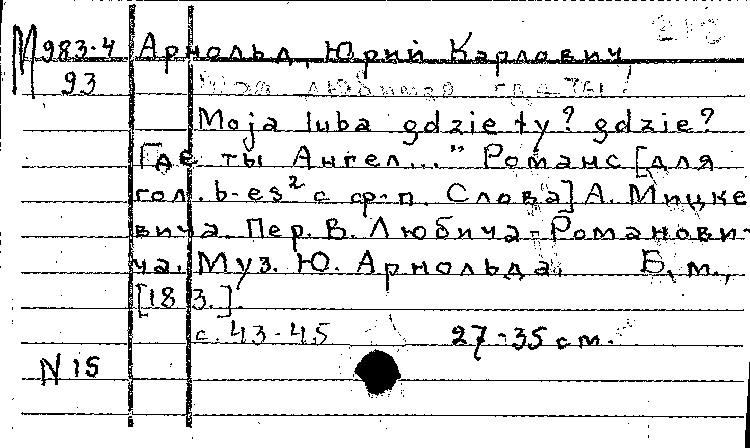 М 983-4 Арнольд, Юрий Карлович,
93
Moja luba gdzie ty? gdzie?
Где ты Ангел..." Романс [для
гол. b-es² с ф-п. Слова] А. Мицке
вича. Пер. В. Любича-Романови-
ча. Муз. Ю. Арнольда. Б.м.,
[18 3.].
с. 43-45 27-35 см.
N 15